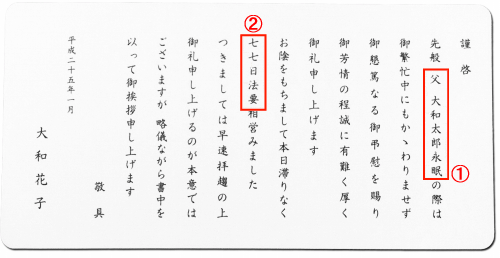 謹啓
先般 父 大和太郎永眠の際は
御繁忙中にもかゝわりませず
御懇篤なる御弔慰を賜り
御芳情の程誠に有難く厚く
御礼申し上げます
お陰をもちまして本日滞りなく
七七日法要相営みました
つきましては早速拝趨の上
御礼申し上げるのが本意では
ございますが 略儀ながら書中を
以って御挨拶申し上げます
敬具
平成二十五年一月
大和花子
①
②